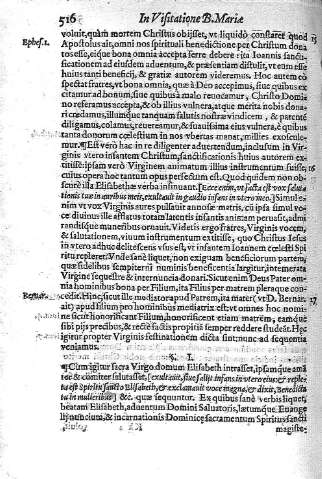 516 In Visitatione B. Mariæ
voluit, quàm mortem Christus obijsset, vt liquidò constaret quod
Ephes. 1. Apostolus ait, omni nos spirituali benedictione per Christum dona
tos esse, eique bona omnia accepta ferre debere
ficationem ad eiusdem aduentum, & præsentiam
huius tanti beneficij, & gratiæ autorem videremus. Hoc autem eò
spectat fratres, vt bona omnia, quæ à Deo accepimus, siue quibus ex
citamur ad bonum, siue quibus à malo reuocamur, Christo Domi
no referamus accepta, & ob illius vulnera, atque merita nobis dona
ri credamus, illumque tanquam salutis nostræ vindicem, & parentē
diligamus, colamus, reuereamur, & suauissima eius vlcera, è quibus
tanta donorum cœlestium in nos vbertas manat, millies exoscule-
mur. ¶ Est verò hac in re diligenter aduertendum, inclusum in Vir-
ginis vtero infantem Christum, sanctificationis huius autorem ex-
titisse: ipsam verò Virginem animatum illius instrumentum fuisse, 16
cuius opera hoc tantum opus perfectum est. Quod quidem non ob-
scurè illa Elisabethæ verba insinuant. [Ecce enim, vt facta est vox saluta
tionis tuæ in auribus meis, exultauit in gaudio infans in vtero meo.] Simul e-
nim vt vox Virginis aures pulsauit annosæ matris, cū ipsa simul vo-
ce diuinus ille afflatus totam latentis infantis animam peruasit, admi
randisque muneribus ornauit. Videtis ergo fratres, Virginis vocem,
& salutationem, viuum instrumentum extitisse, quo Christus Iesus
in vtero adhuc delitescens vsus est, vt infantem Ioannem cœlesti Spi
ritu repleret. Vnde sanè liquet, non exiguam beneficiorum partem,
quæ fidelibus sempiterni numinis beneficentia largitur, intemerata
Virgine sequestre & internuncia donari. Sicut enim Deus Pater om-
nia hominibus bona per Filium, ita Filius per matrem pleraque con-
Bernar. cedit. Hinc, sicut ille mediator apud Patrem, ita mater (vt D. Bernar. 17
ait) apud filium pro hominibus mediatrix est: vt omnes hoc nomi-
ne sicut honorificant Filium, honorificent etiam matrem, eamque
sibi pijs precibus, & rectè factis propitiā semper reddere studeāt. Hęc
igitur propter Virginis festinationem dicta sint: nunc ad sequentia
veniamus.
§. I.
¶ Cùm igitur sacra Virgo domum Elisabeth intrasset, ipsamque ama
ter & comiter salutasset, [exultauit, siue salijt infans in vtero eius: & reple
ta est Spiritu sancto Elisabeth, & exclamauit voce magna, & dixit, Benedicta
tu in mulieribus] &c. quæ sequuntur. Ex quibus sanè verbis liquet,
beatam Elisabeth, aduentum Domini Saluatoris, lætumque Euange
lij nuncium, & incarnationis Dominicæ sacramentum Spiritus sancti
magiste-